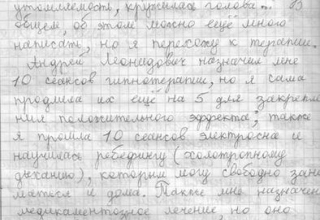 утомляемость, кружилась голова... В
общем, об этом можно ещё много
написать, но я перехожу к терапии.
Андрей Леонидович назначил мне
10 сеансов гипнотерапии, но я сама
продлила их ещё на 5 для закрепле
ния положительного эффекта, также
я прошла 10 сеансов электросна и
научилась ребефингу (холотропному
дыханию), которым могу свободно зани
маться и дома. Также мне назначен
медикаментозное лечение, но оно